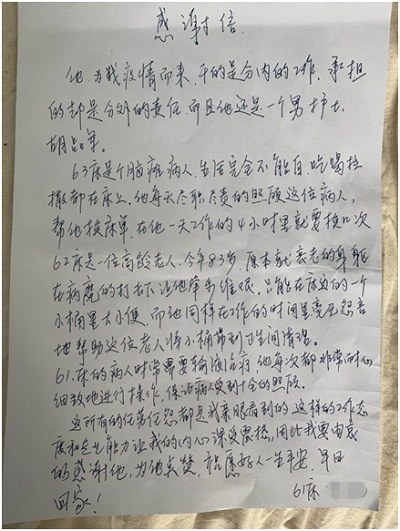 感谢信
他为我疫情而来,干的是分内的工作,承担
的却是分外的责任,而且他还是一个男护士
胡品军。
63床是个脑瘫病人,生活完全不能自,吃喝拉
撒都在床上,他每天尽职尽责的照顾这位病人,
帮他换床单,在他一天工作的4小时里就要换口次
62床是一位高龄老人,今年83岁,原本就衰老的身躯
在病魔的打击下让他举步维艰,只能在床边的一个
小桶里大小便,而他同样在工作的时间里毫无怨言
地帮助这位老人将小桶带到卫生间清理。
61床的病人时常需要输液治疗,他每次都非常耐心
细致地进行操作,保证病人受到十全的照顾。
这所有的任劳任怨都是我亲眼看到的,这样的工作态
度和专业能力让我的内心深受震撼,因此我要由衷
的感谢他,为他点赞,祝愿好人一生平安,早日
回家!
61床